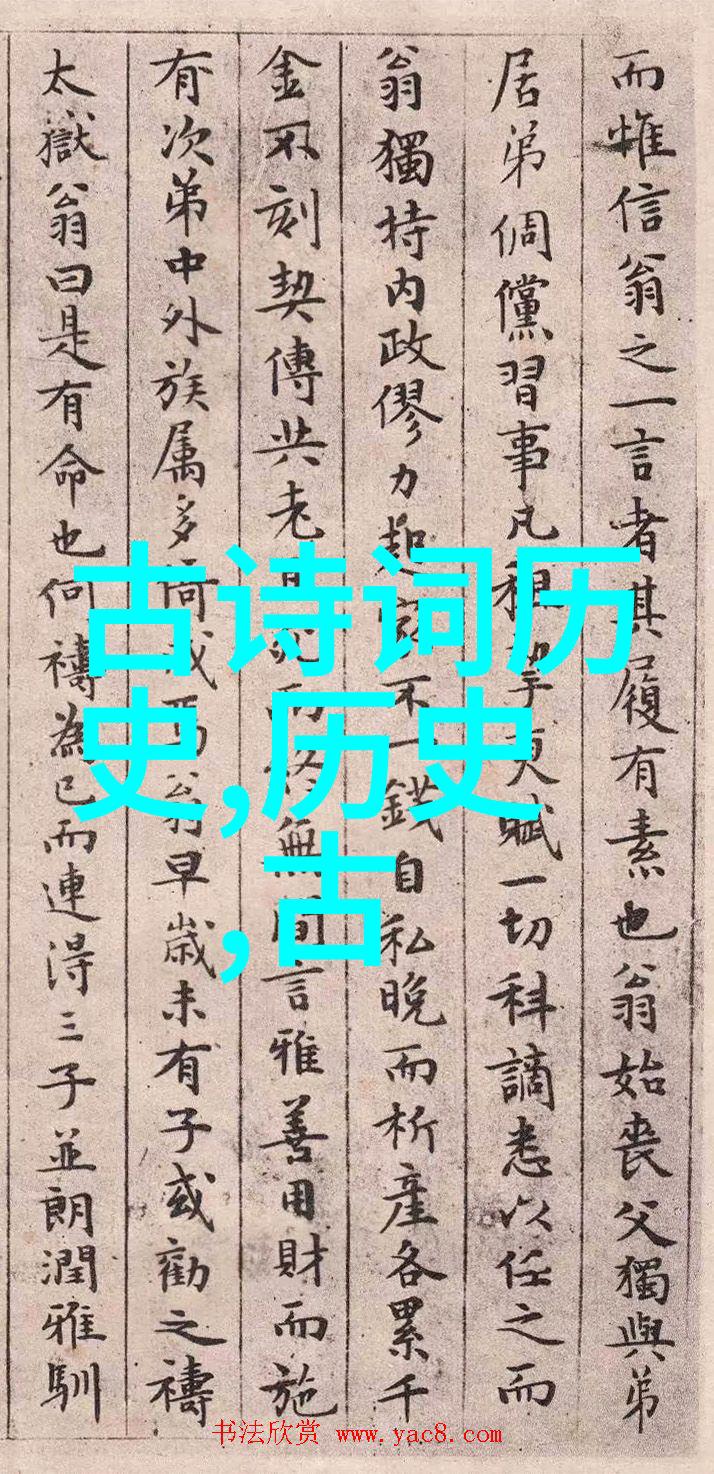 而惟信翁之一言者其履有素也翁始喪父獨與弟
居弟倜儻習事凡租更賦一切科謫悉以任之而
翁獨持内政僇力起家不一錢自私晚而析產各累千
金不刻契傳共老而終無間言雅善用財而施
有次弟中外族属多倚成焉翁早歲未有子或勸之禱
太嶽翁曰是有命也何禱為已而連得三子並朗潤雅馴
古诗词历
史,历史
,古
书法欣赏 www.yac8.com